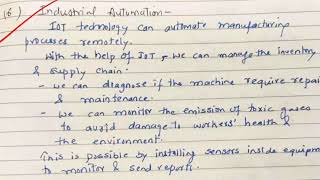 (6) Industrial Automation -
IOT technology can automate manufacturing
processes remotely.
With the help of IOT, we can manage the inventory
& supply chain.
- we can diagnose if the machine require repai
& maintenance.
- we can monitor the emission of toxic gases
to avoid damage to workers' health &
the environment.
This is possible by installing sensors inside equipm
to monitor & send reports.